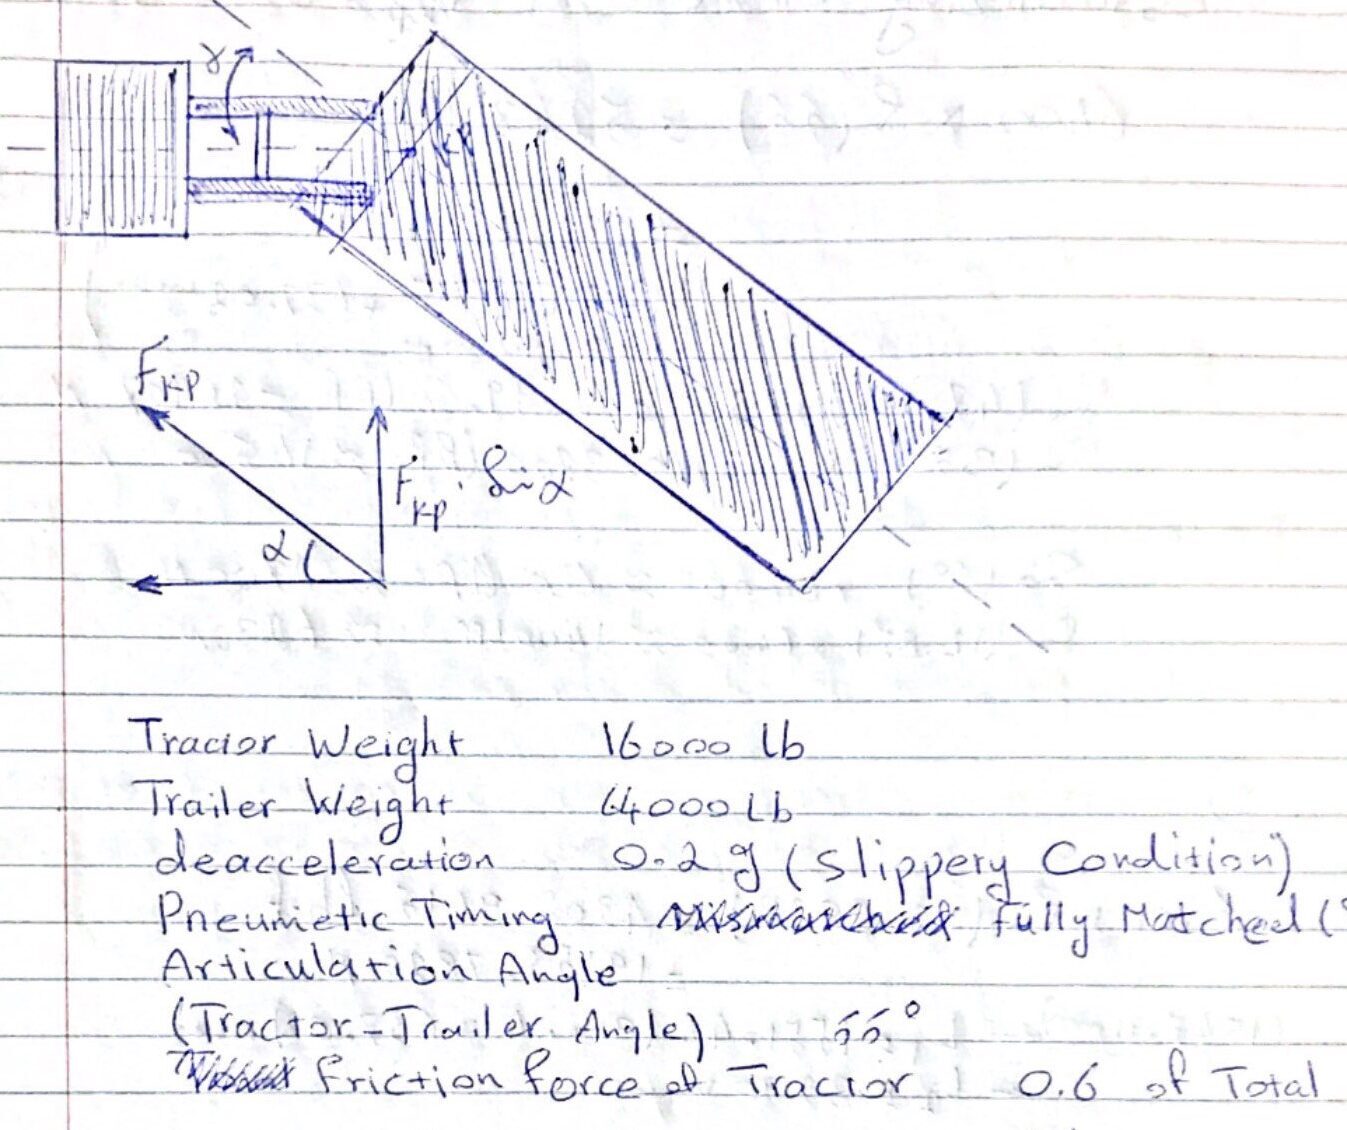 γ
KP
F_KP
F_KP . Sin α
α
Tractor Weight 16000 lb
Trailer Weight 64000 Lb
deacceleration 0.2 g (Slippery Condition)
Pneumetic Timing Fully Matched (
Articulation Angle
(Tractor-Trailer Angle) 55°
Friction force of Tractor 0.6 of Total